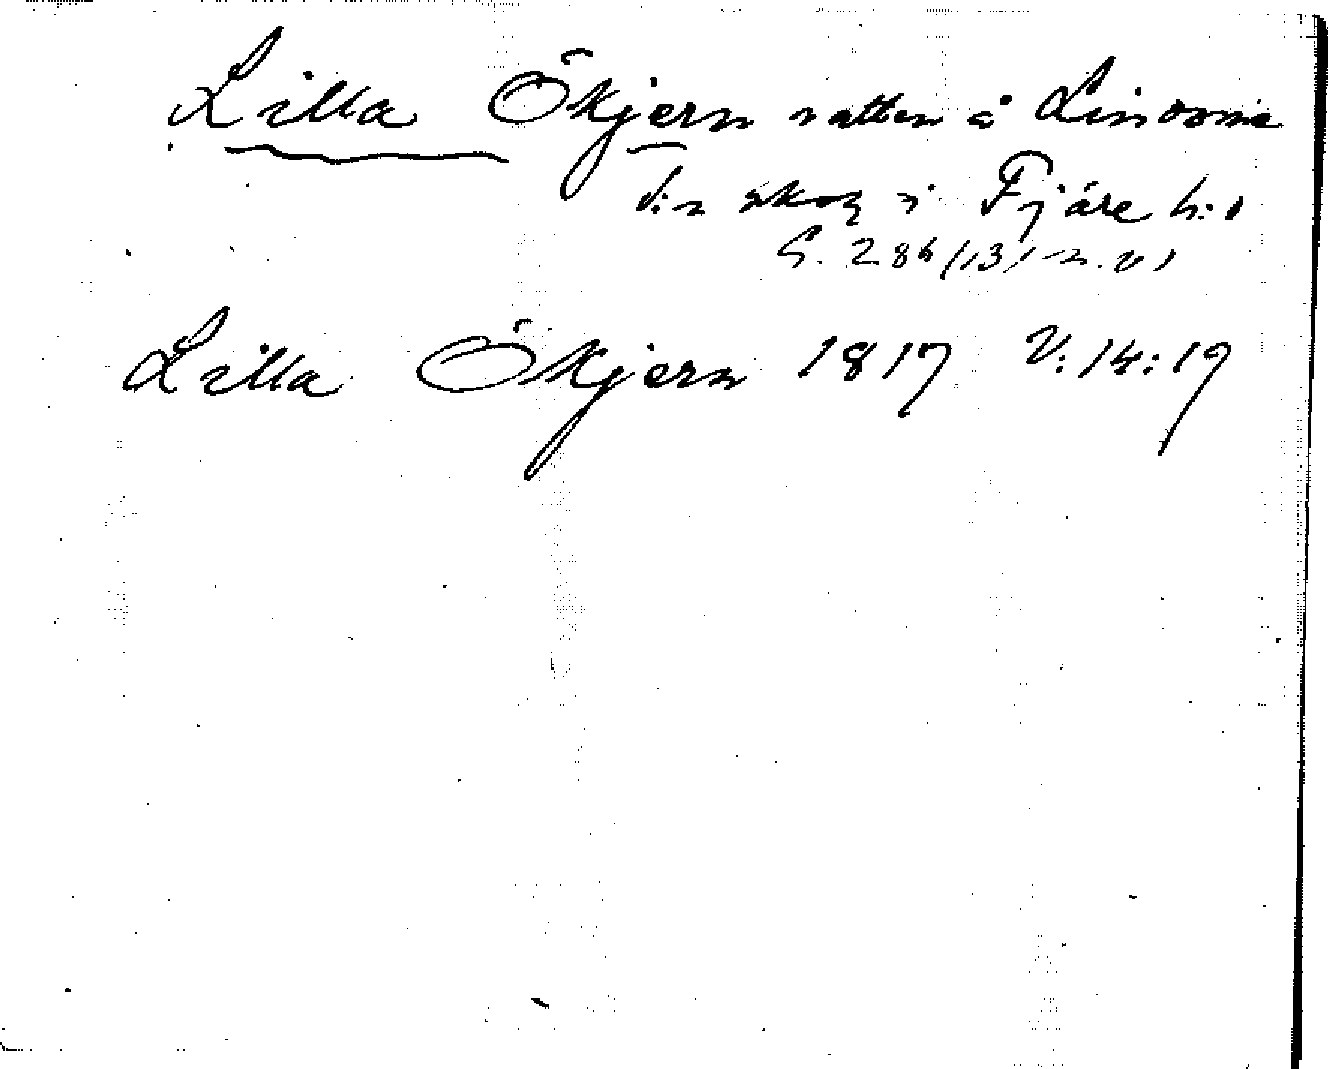 Lilla Ökjern vatten å Lindome
s:n skog i Fjäre h:d
G. 286 (13) n. v)
Lilla Ökjern 1817 V:14:19